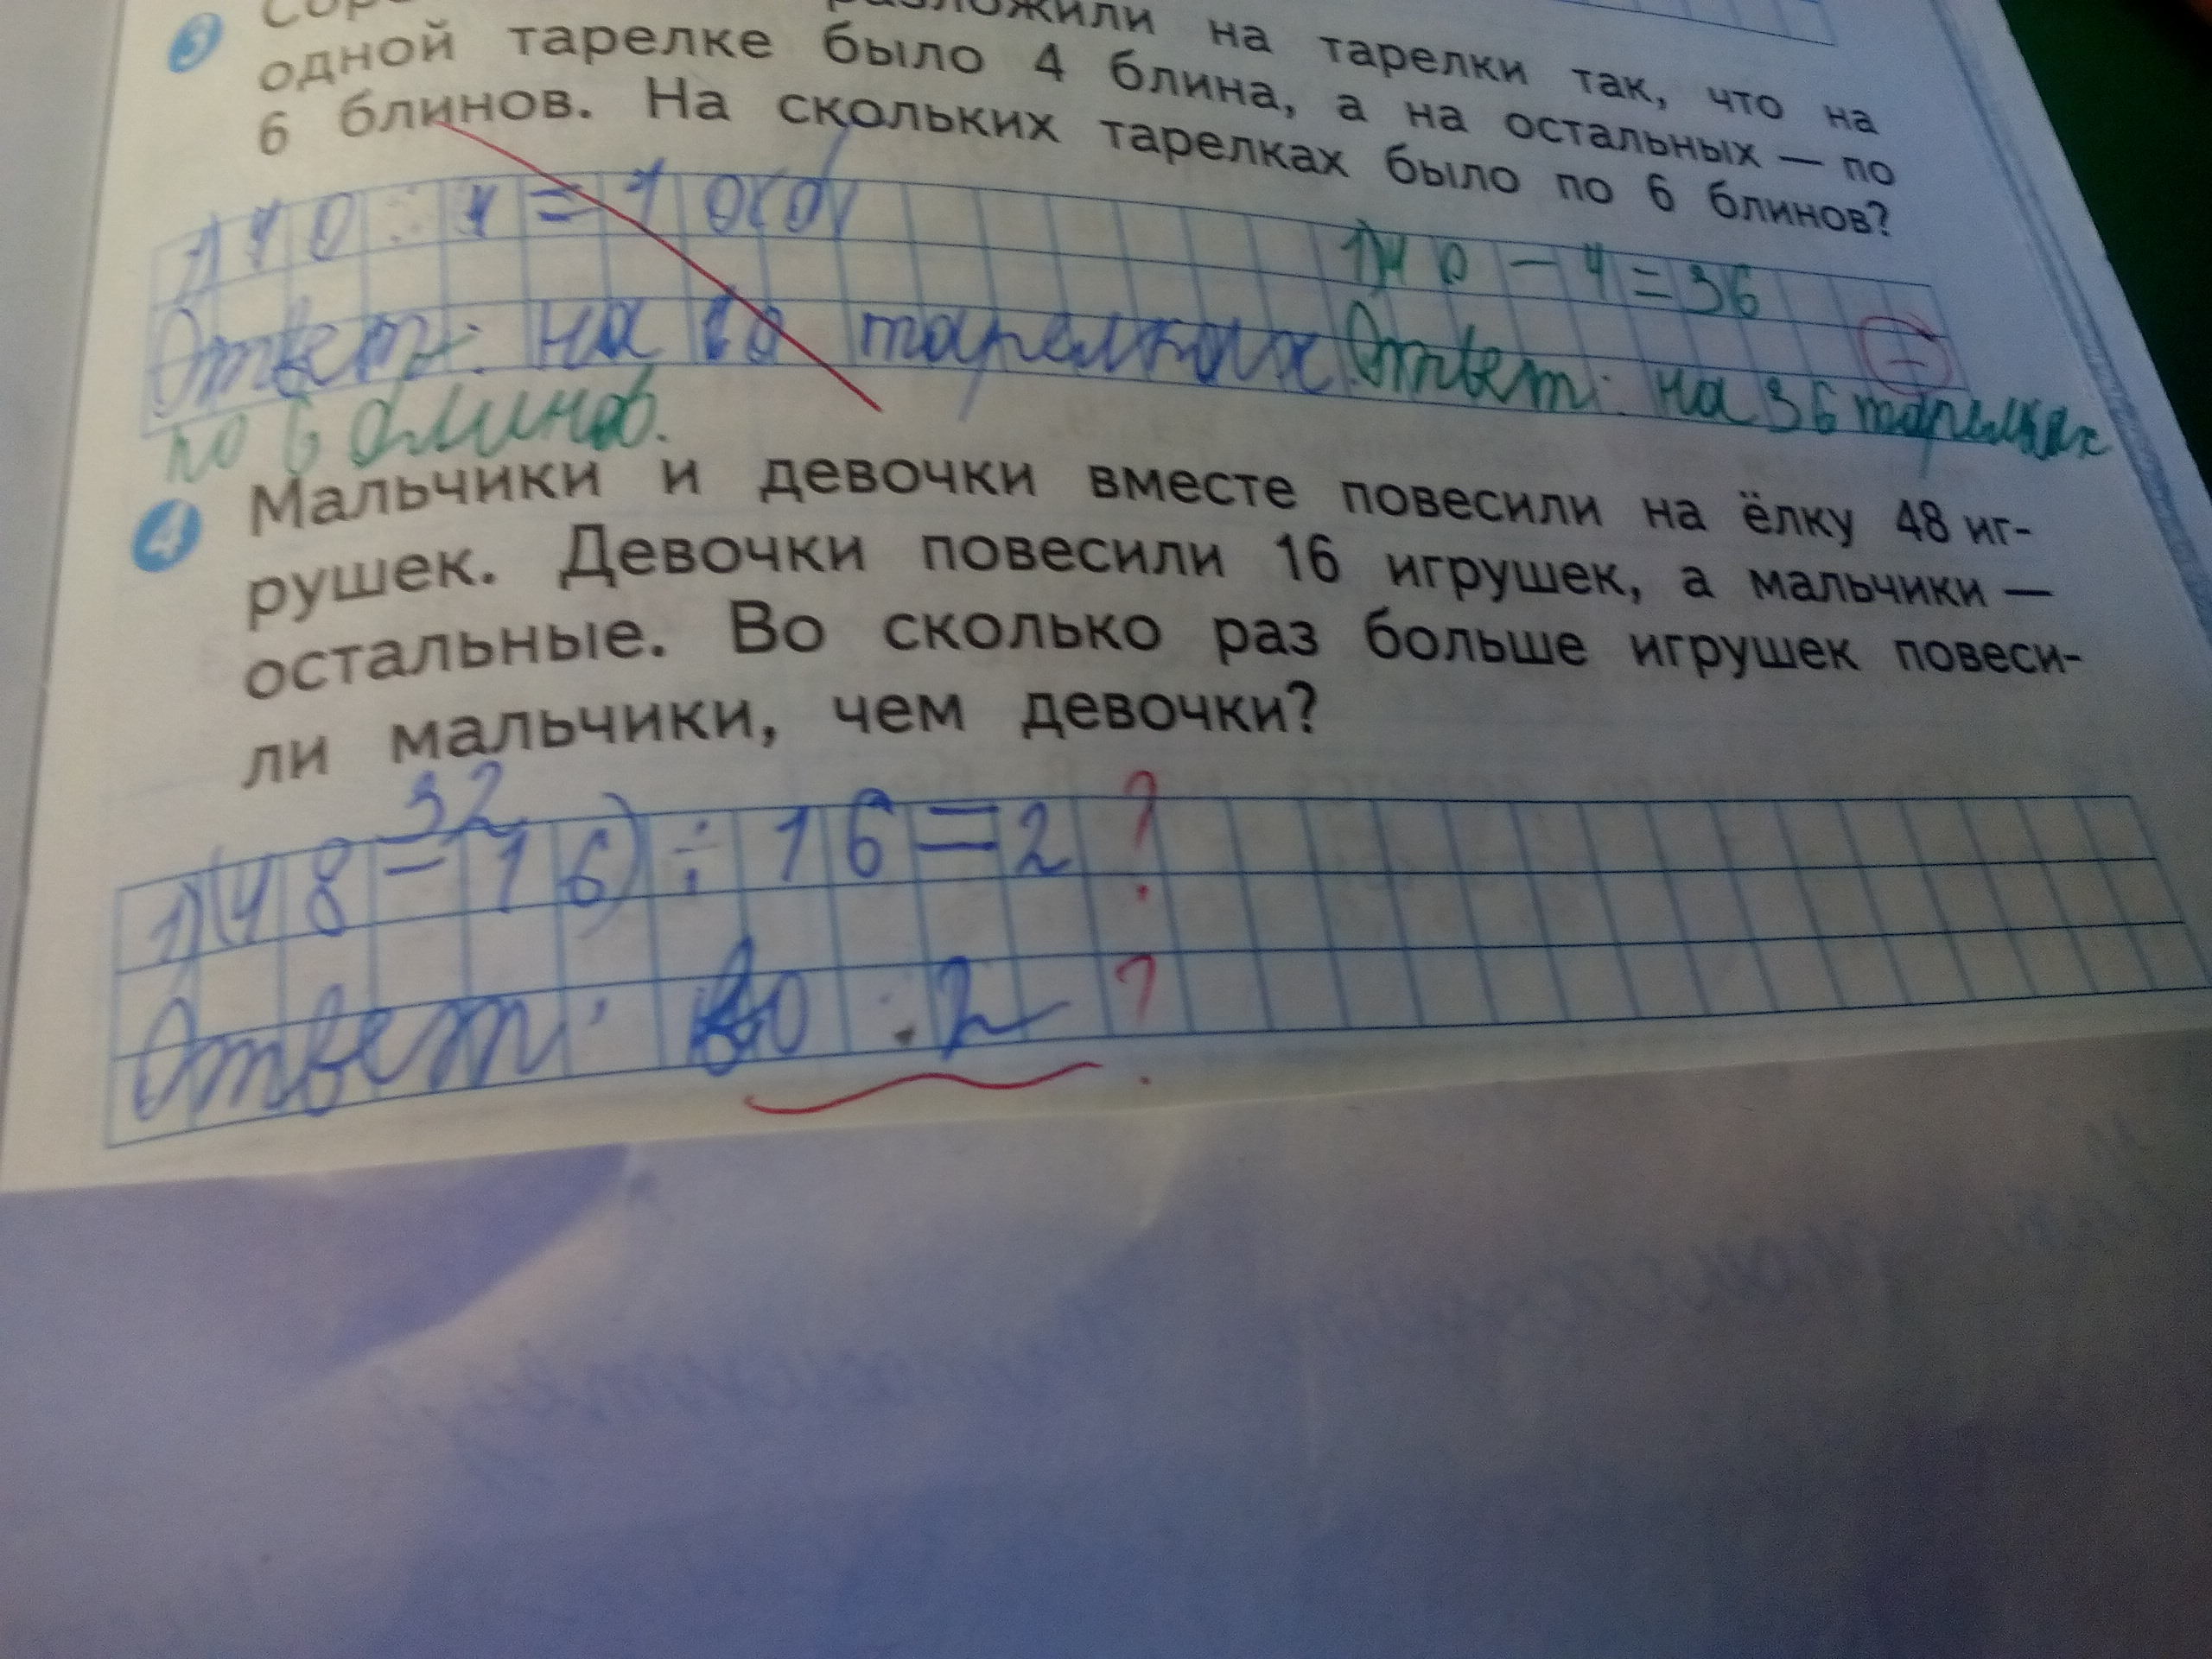 3 разложили на тарелки так, что на
одной тарелке было 4 блина, а на остальных — по
6 блинов. На скольких тарелках было по 6 блинов?
1) 40 - 4 = 36
Ответ: на 10 тарелках. Ответ: на 36 тарелках
по 6 блинов.
4 Мальчики и девочки вместе повесили на ёлку 48 иг-
рушек. Девочки повесили 16 игрушек, а мальчики —
остальные. Во сколько раз больше игрушек повеси-
ли мальчики, чем девочки?
32
1) (48 - 16) ÷ 16 = 2 ?
Ответ: во 2 ?